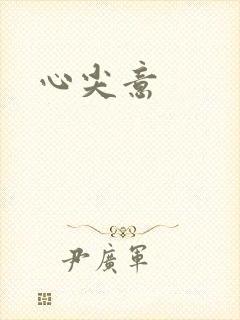 心尖意
尹廣軍